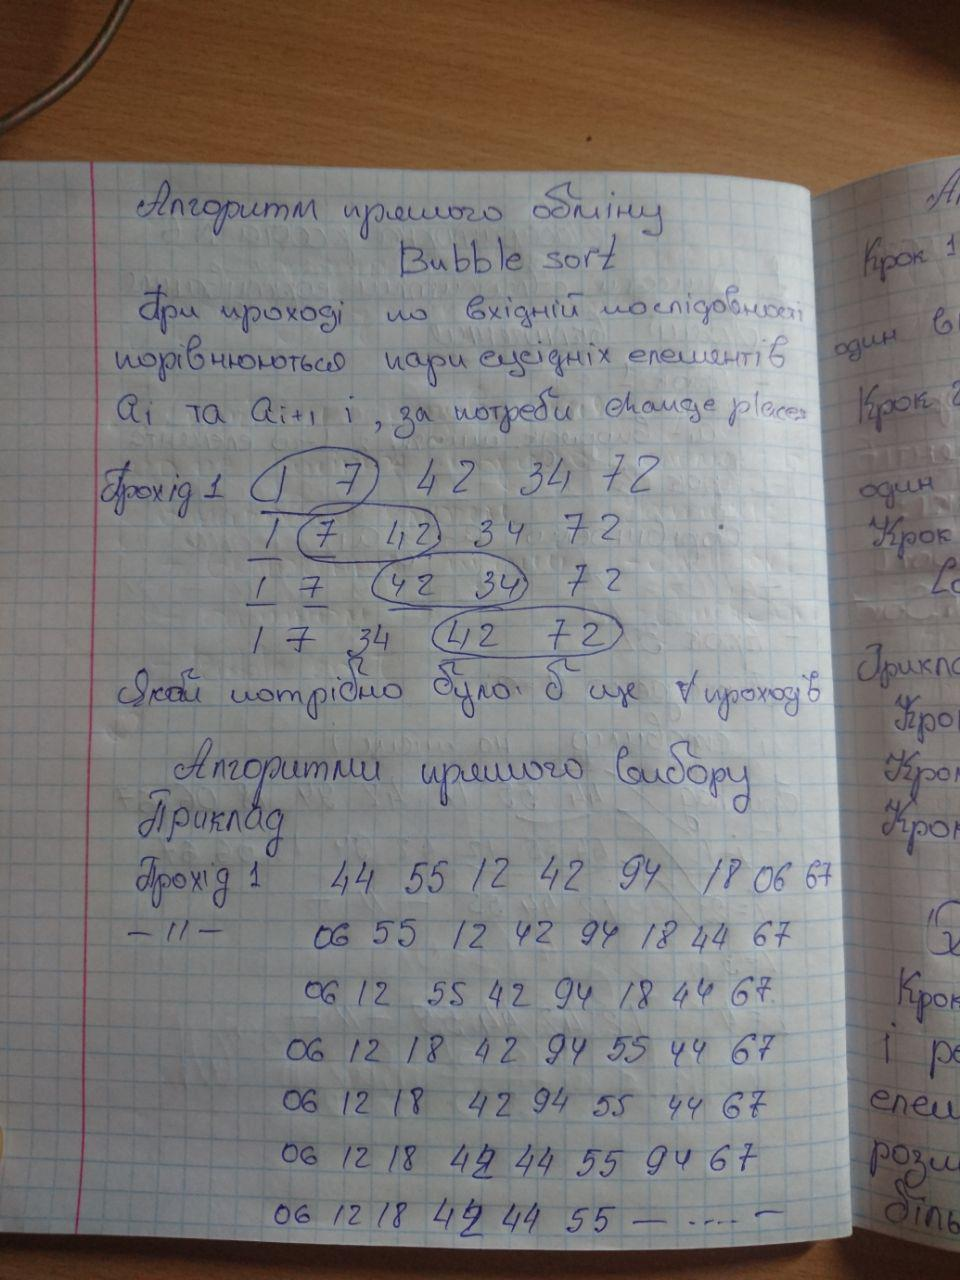 Алгоритм прямого обміну
Bubble sort
При проході по вхідній послідовності
порівнюються пари сусідніх елементів
ai та ai+1 і, за потреби change places
Прохід 1 1 7 42 34 72
1 7 42 34 72
1 7 42 34 72
1 7 34 42 72
потрібно було б ще проходів
Алгоритми прямого вибору
Приклад
Прохід 1 44 55 12 42 94 18 06 67
– 11 – 06 55 12 42 94 18 44 67
06 12 55 42 94 18 44 67
06 12 18 42 94 55 44 67
06 12 18 42 94 55 44 67
06 12 18 42 44 55 94 67
06 12 18 42 44 55 — .... —
Крок 1
один
Крок
один
Крок
Крок